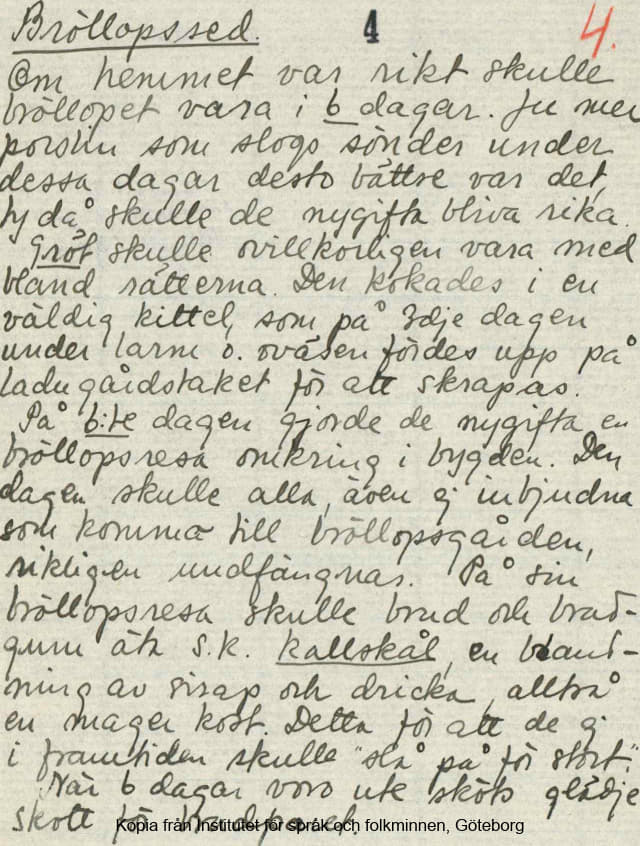 Bröllopssed. 4 4.
Om hemmet var rikt skulle
bröllopet vara i 6 dagar. Ju mer
porslin som slogs sönder under
dessa dagar desto bättre var det,
ty då skulle de nygifta bliva rika.
Gröt skulle ovillkorligen vara med
bland rätterna. Den kokades i en
väldig kittel, som på 3dje dagen
under larm o. oväsen fördes upp på
ladugårdstaket för att skrapas.
På 6:te dagen gjorde de nygifta en
bröllopsresa omkring i bygden. Den
dagen skulle alla, även ej inbjudna
som komma till bröllopsgården,
rikligen undfängnas. På sin
bröllopsresa skulle brud och brud-
gum äta s.k. kallskål, en bland-
ning av sirap och dricka, alltså
en mager kost. Detta för att de ej
i framtiden skulle "slå på för stort".
När 6 dagar voro ute sköts glädje
skott för brudparet.
Kopia från Institutet för språk och folkminnen, Göteborg